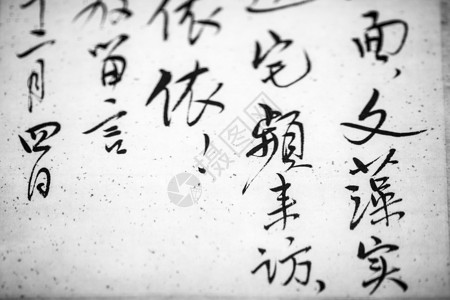 面，文藻实
宅频来访、
依依！
留言
十二月四日